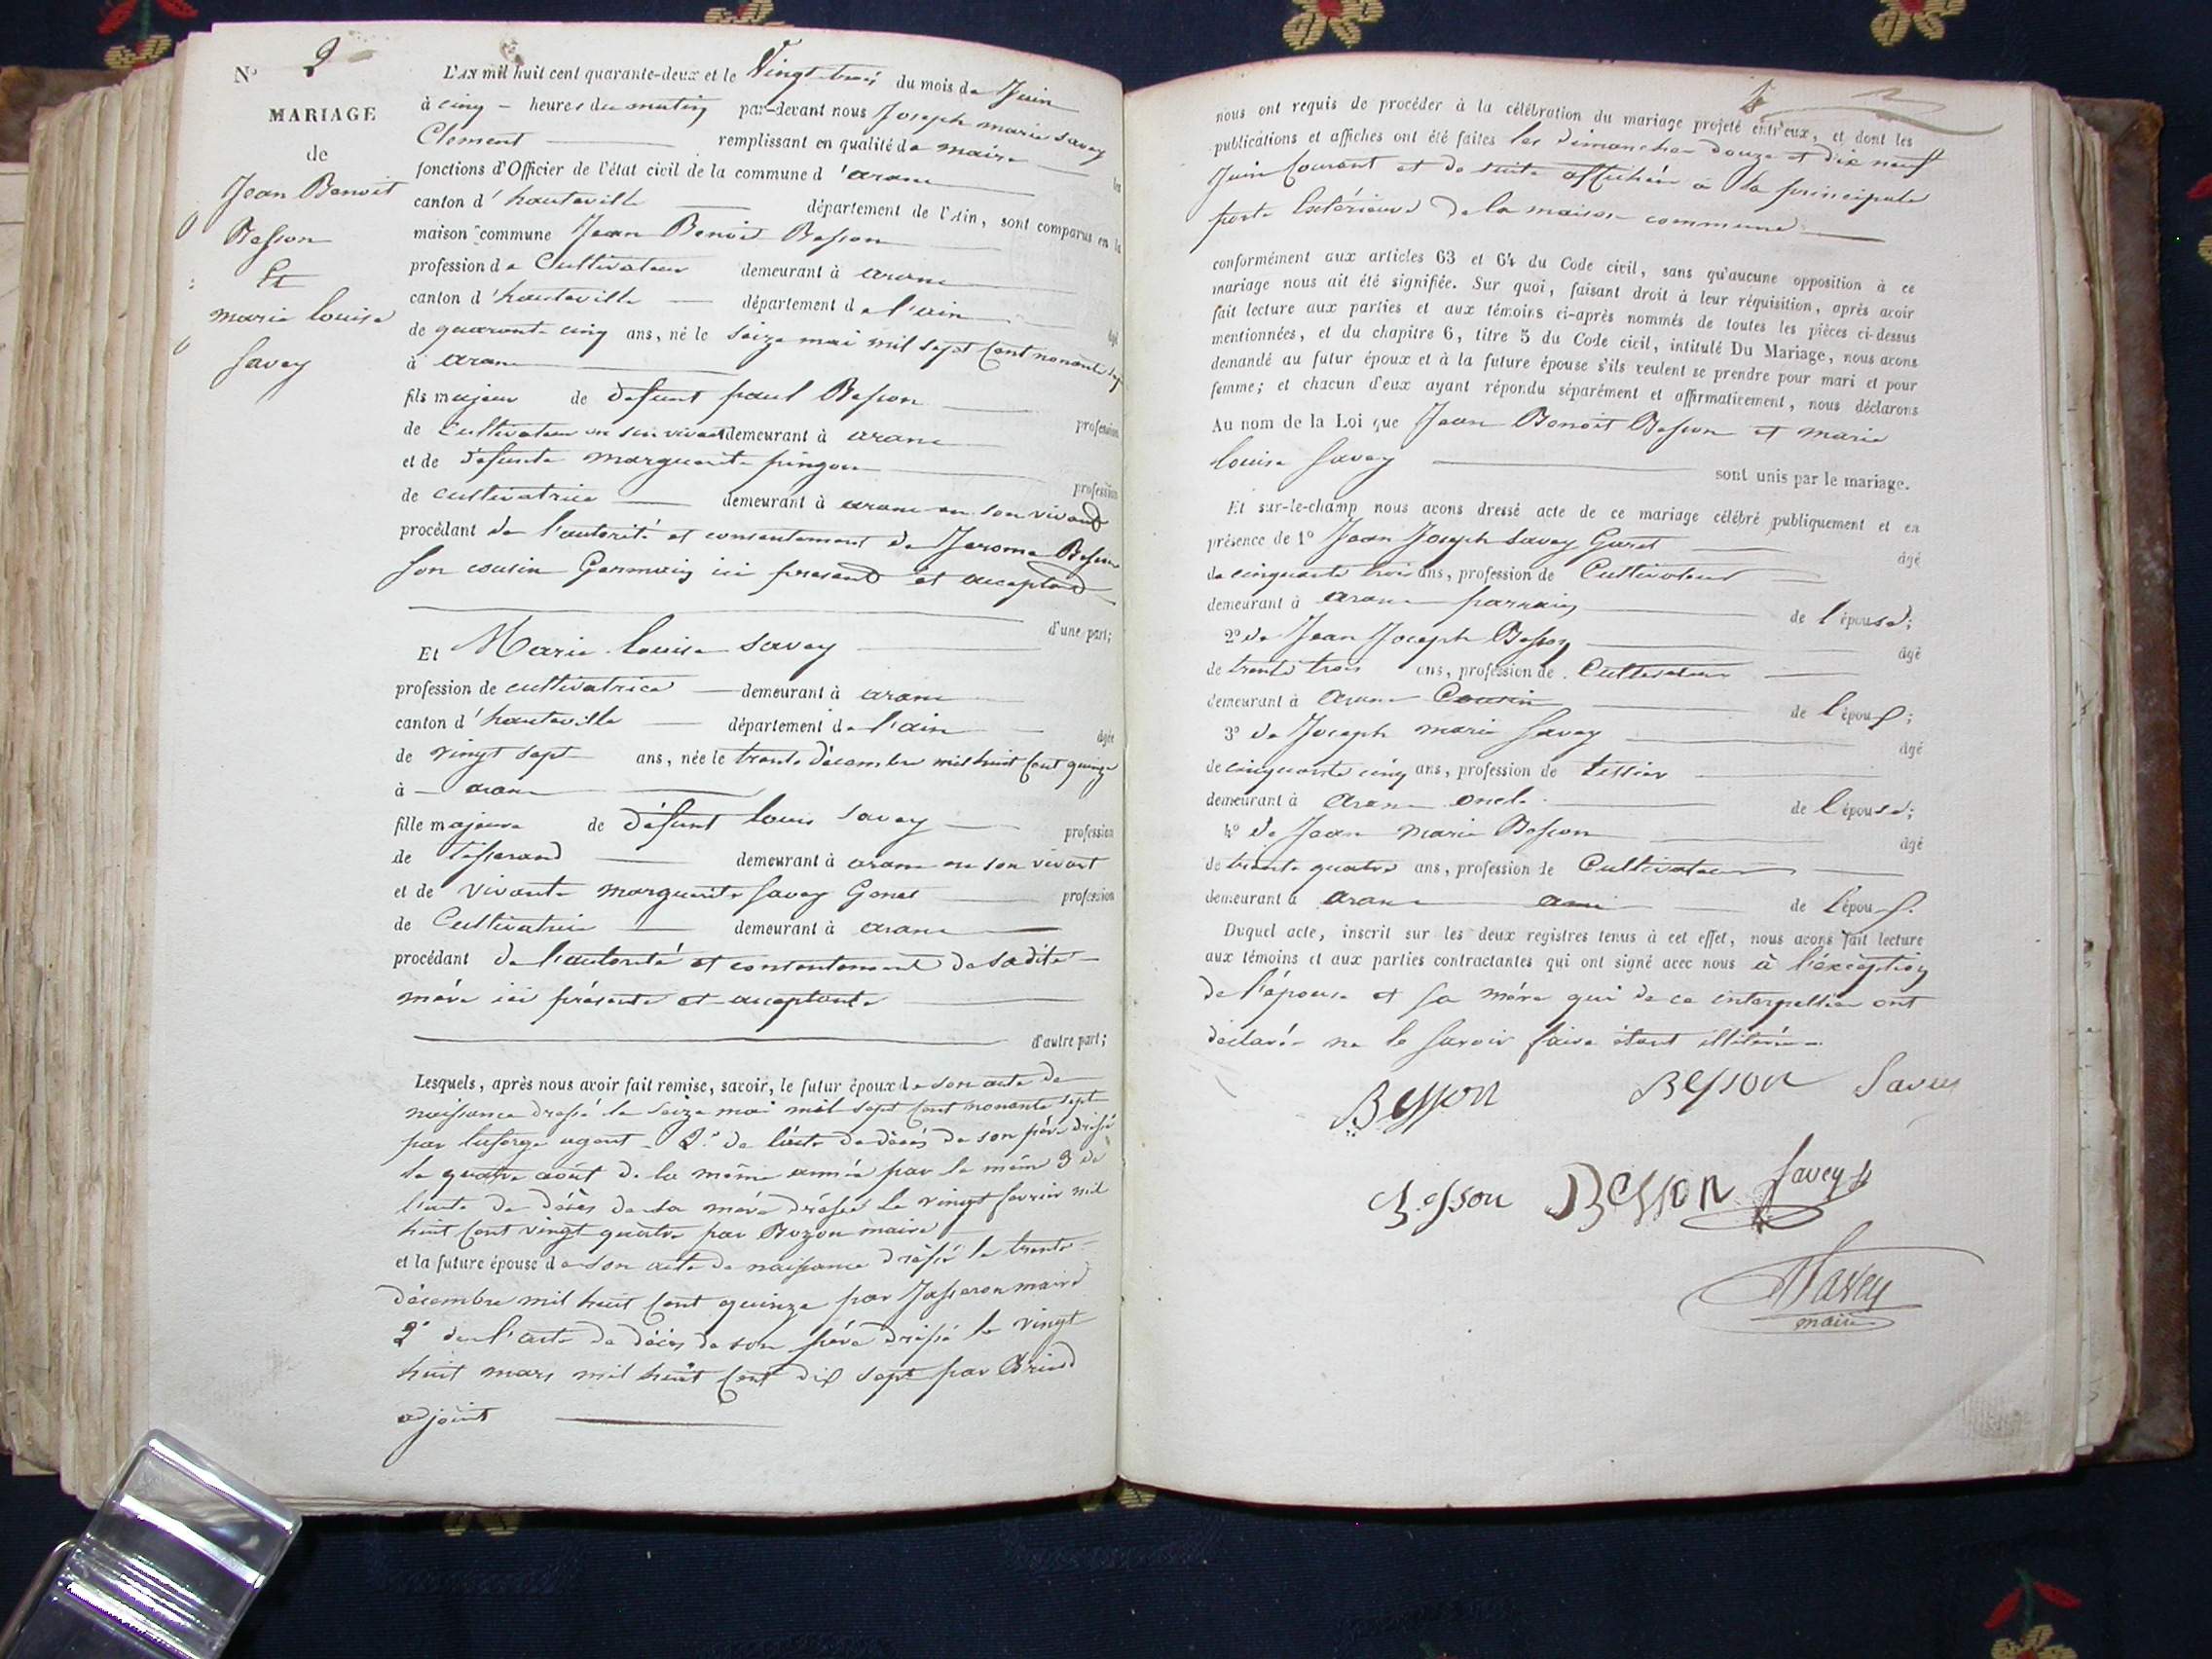 N° 2
MARIAGE
de
Jean Benoit
Besson
Et
marie louise
Savey
L'AN mil huit cent quarante-deux et le Vingt trois du mois de Juin
à cinq heures du matin par-devant nous Joseph marie Savey
Clement remplissant en qualité de maire les
fonctions d'Officier de l'état civil de la commune d'aranc
canton d'hauteville département de l'Ain, sont comparus en la
maison commune Jean Benoit Besson
profession de Cultivateur demeurant à aranc
canton d'hauteville département de l'ain âgé
de quarante cinq ans, né le seize mai mil sept cent nonante sept
à aranc
fils majeur de defunt paul Besson profession
de Cultivateur en son vivant demeurant à aranc
et de défunte marguerite pingon profession
de cultivatrice demeurant à aranc en son vivand
procédant de l'autorité et consentement de Jerome Besson
son cousin Germain ici presend et acceptand
d'une part;
Et Marie louise Savey
profession de cultivatrice demeurant à aranc
canton d'hauteville département de l'ain âgée
de vingt sept ans, née le trente décembre mil huit cent quinze
à aranc
fille majeure de défunt louis Savey profession
de tisserand demeurant à aranc en son vivant
et de vivante marguerite Savey Gonet profession
de Cultivatrice demeurant à aranc
procédant de l'autorité et consentement de sadite
mère ici présente et acceptante
d'autre part;
Lesquels, après nous avoir fait remise, savoir, le futur époux de son acte de
naissance dressé le seize mai mil sept cent nonante sept
par agent 2° de l'acte de décès de son père dressé
le quatre août de la même année par le même 3 de
l'acte de décès de sa mère dressé le vingt fevrier mil
huit cent vingt quatre par Bozon maire
et la future épouse de son acte de naissance dressé le trente
décembre mil huit cent quinze par Jasseron maire
2° de l'acte de décès de son père dressé le vingt
huit mars mil huit cent dix sept par Brind
adjoint
nous ont requis de procéder à la célébration du mariage projeté entr'eux, et dont les
publications et affiches ont été faites les dimanches douze et dix neuf
Juin Courant et de suite affichés à la principale
porte Extérieure de la maison commune
conformément aux articles 63 et 64 du Code civil, sans qu'aucune opposition à ce
mariage nous ait été signifiée. Sur quoi, faisant droit à leur réquisition, après avoir
fait lecture aux parties et aux témoins ci-après nommés de toutes les pièces ci-dessus
mentionnées, et du chapitre 6, titre 5 du Code civil, intitulé Du Mariage, nous avons
demandé au futur époux et à la future épouse s'ils veulent se prendre pour mari et pour
femme; et chacun d'eux ayant répondu séparément et affirmativement, nous déclarons
Au nom de la Loi que Jean Benoit Besson et marie
louise Savey sont unis par le mariage.
Et sur-le-champ nous avons dressé acte de ce mariage célébré publiquement et en
présence de 1° Jean Joseph Savey Guret âgé
de cinquante trois ans, profession de Cultivateur
demeurant à aranc parrain de l'épouse;
2° de Jean Joseph Besson âgé
de trente trois ans, profession de Cultivateur
demeurant à aranc Cousin de l'époux;
3° de Joseph marie Savey âgé
de cinquante cinq ans, profession de tessier
demeurant à aranc oncle de l'épouse;
4° de Jean Marie Besson âgé
de trente quatre ans, profession de Cultivateur
demeurant à aranc ami de l'époux.
Duquel acte, inscrit sur les deux registres tenus à cet effet, nous avons fait lecture
aux témoins et aux parties contractantes qui ont signé avec nous à l'exception
de l'épouse et sa mère qui de ce interpellée ont
déclaré ne le savoir faire étant illitérée
Besson Besson Savey
Besson Besson Savey
Savey
maire